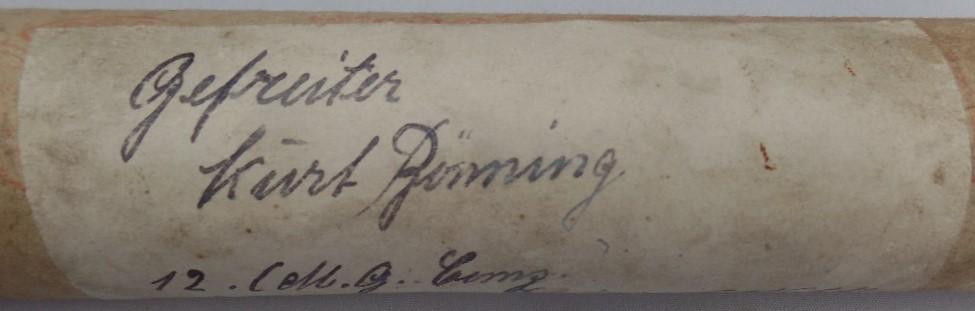 Gefreiter
Kurt Bönning
12. (M.G. Comp.